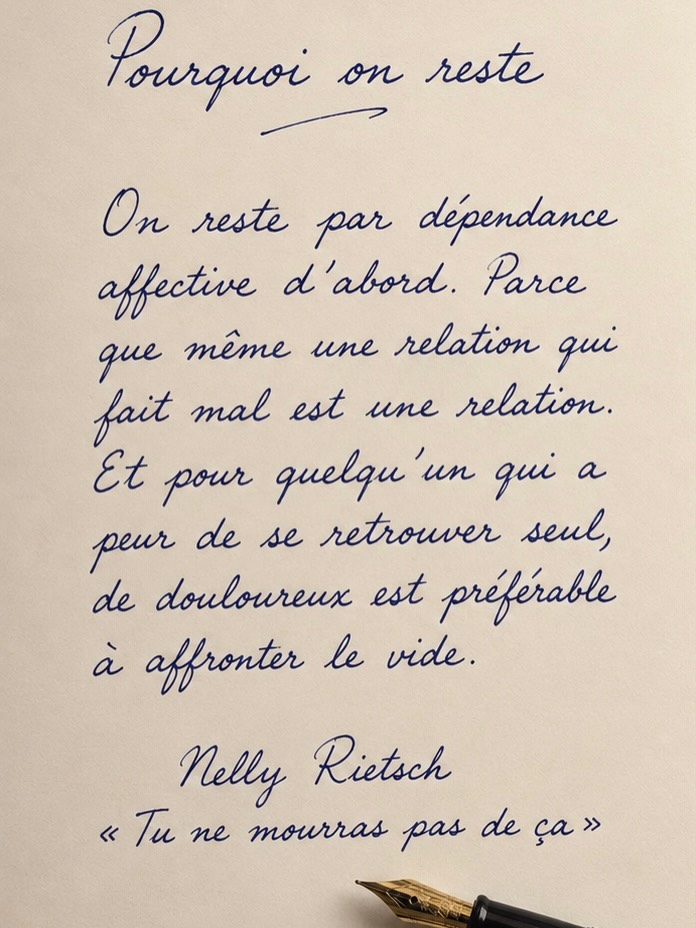 Pourquoi on reste
On reste par dépendance
affective d'abord. Parce
que même une relation qui
fait mal est une relation.
Et pour quelqu'un qui a
peur de se retrouver seul,
de douloureux est préférable
à affronter le vide.
Nelly Rietsch
« Tu ne mourras pas de ça »